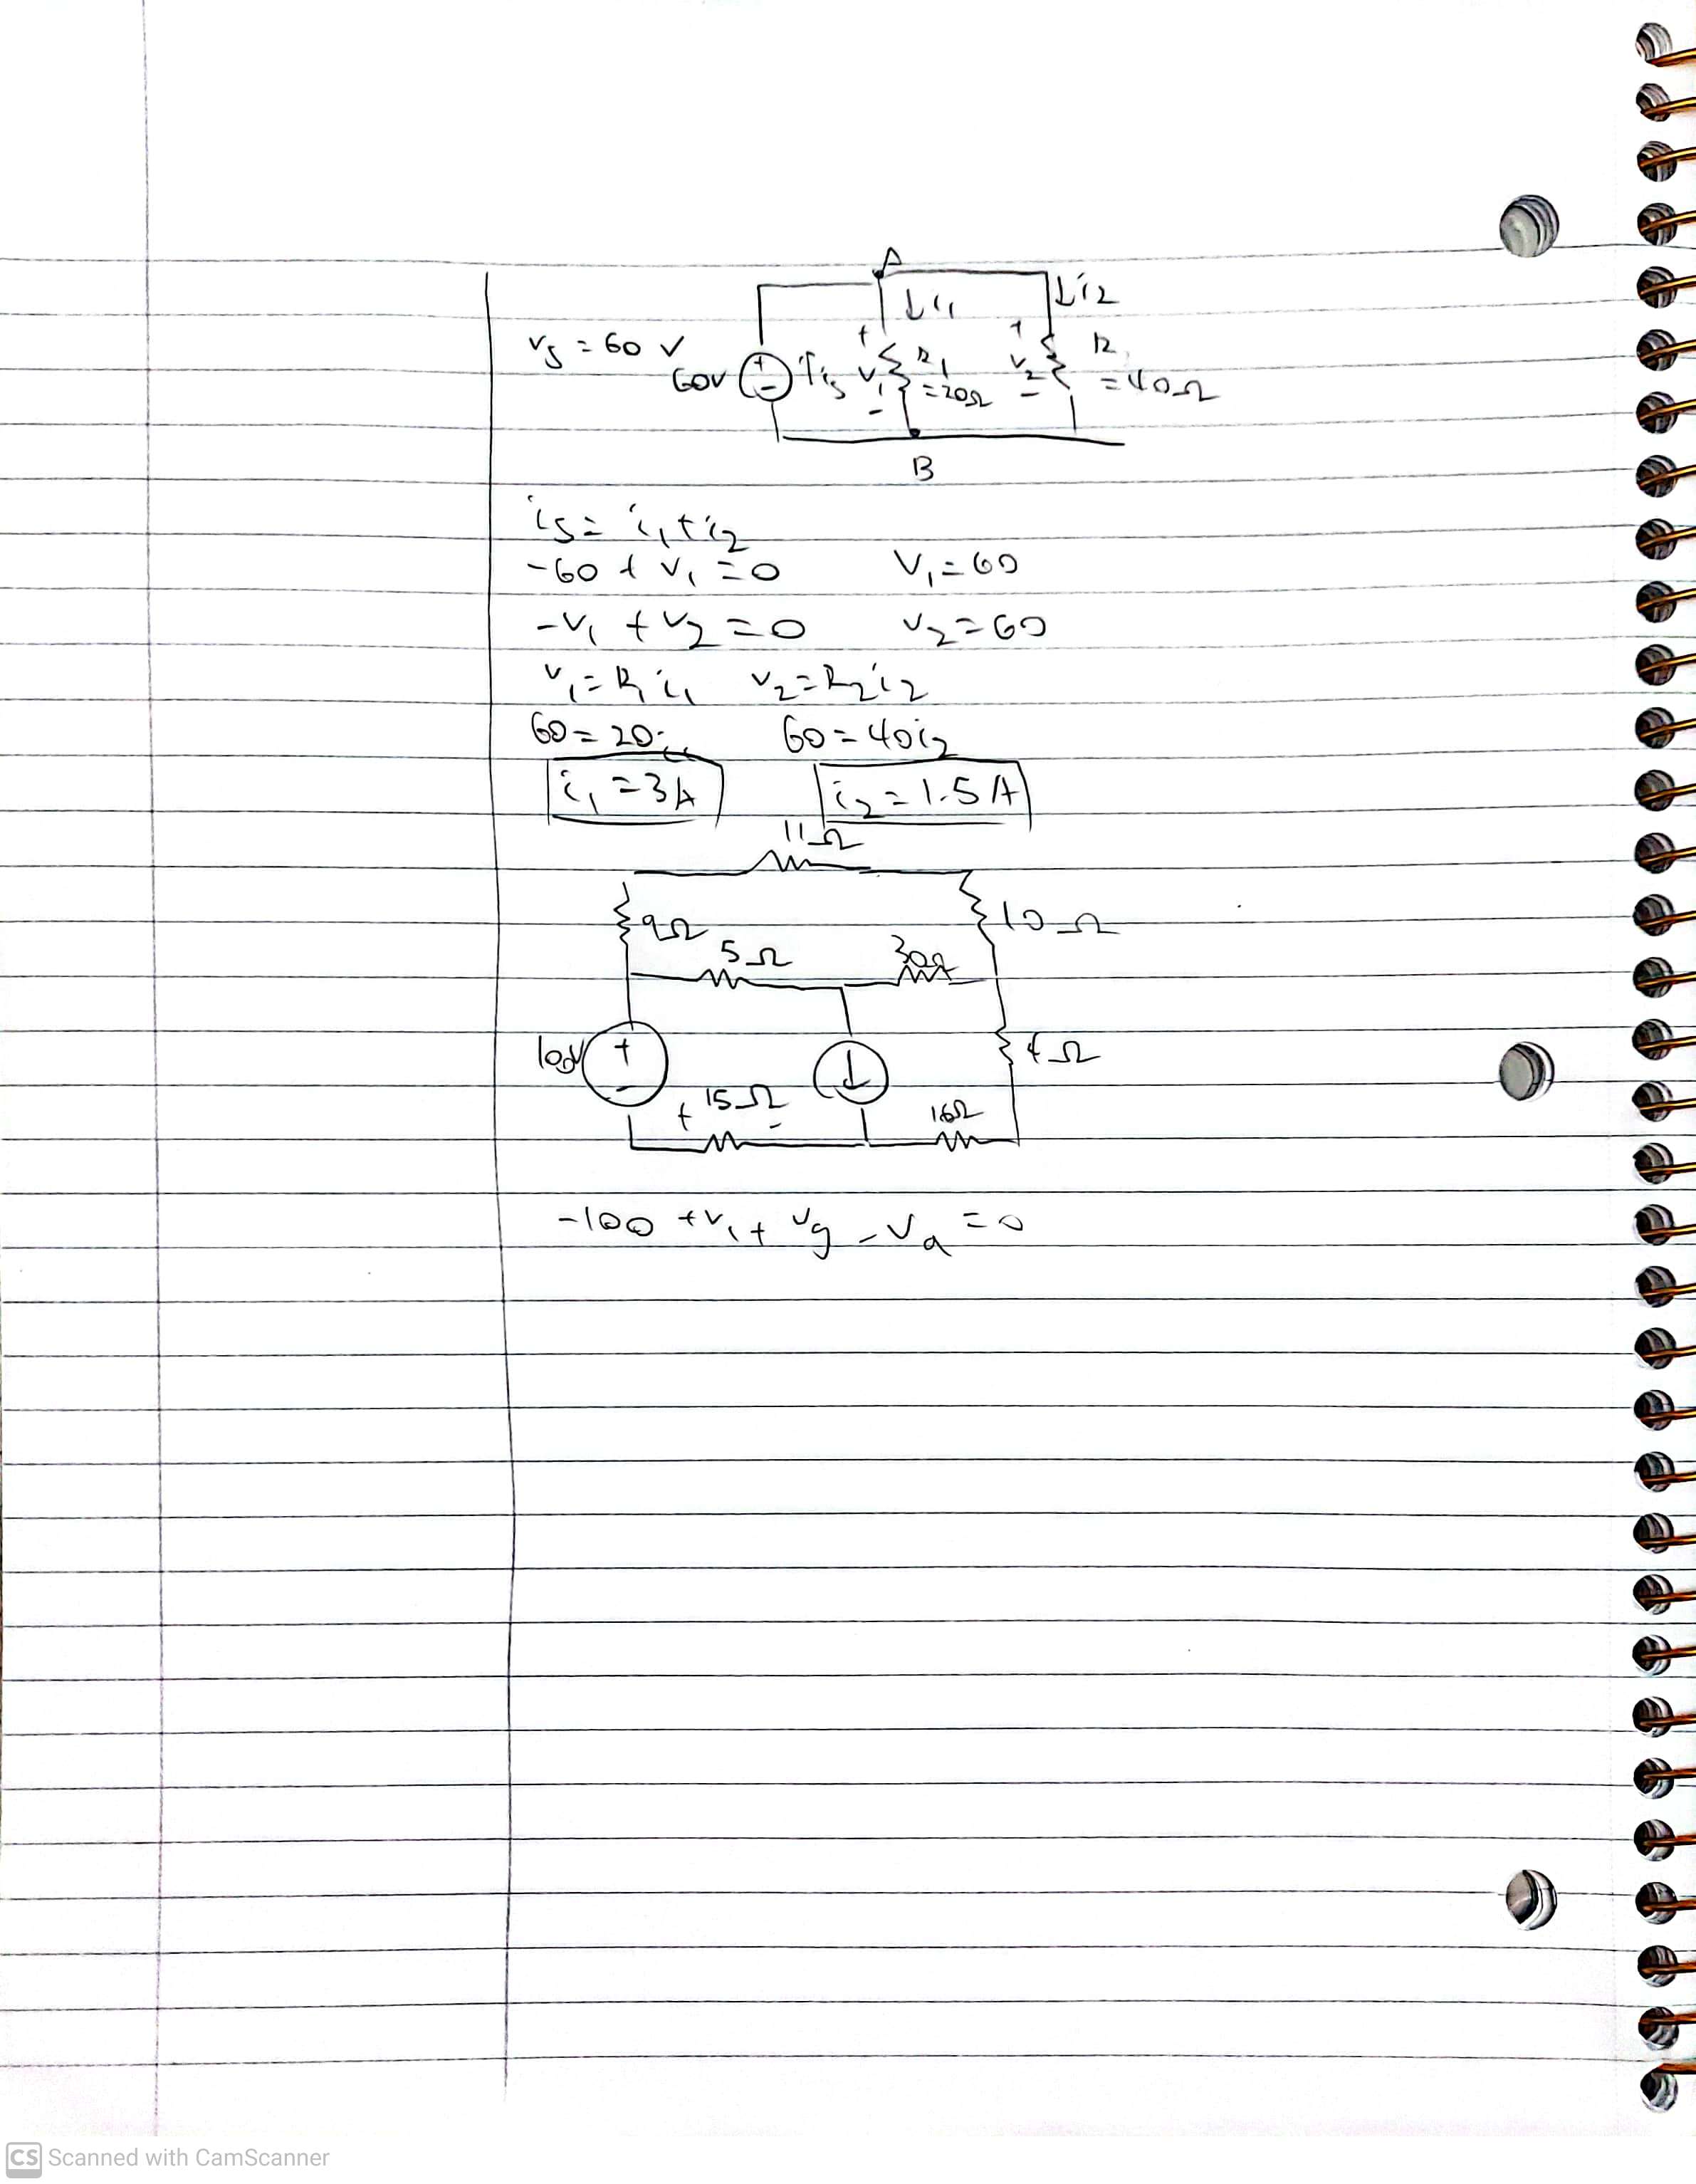 A
↓i₁ ↓i₂
vₛ = 60 V
60V + - ↑iₛ + v₁ - R₁ = 20Ω + v₂ - R = 40Ω
B
iₛ = i₁ + i₂
-60 + v₁ = 0 V₁ = 60
-v₁ + v₂ = 0 v₂ = 60
v₁ = R₁i₁ v₂ = R₂i₂
60 = 20i₁ 60 = 40i₂
i₁ = 3A i₂ = 1.5A
11Ω
9Ω 10Ω
5Ω 30Ω
100V + - ↓ 4Ω
+ 15Ω - 16Ω
-100 + v₁ + vg - va = 0
CS Scanned with CamScanner